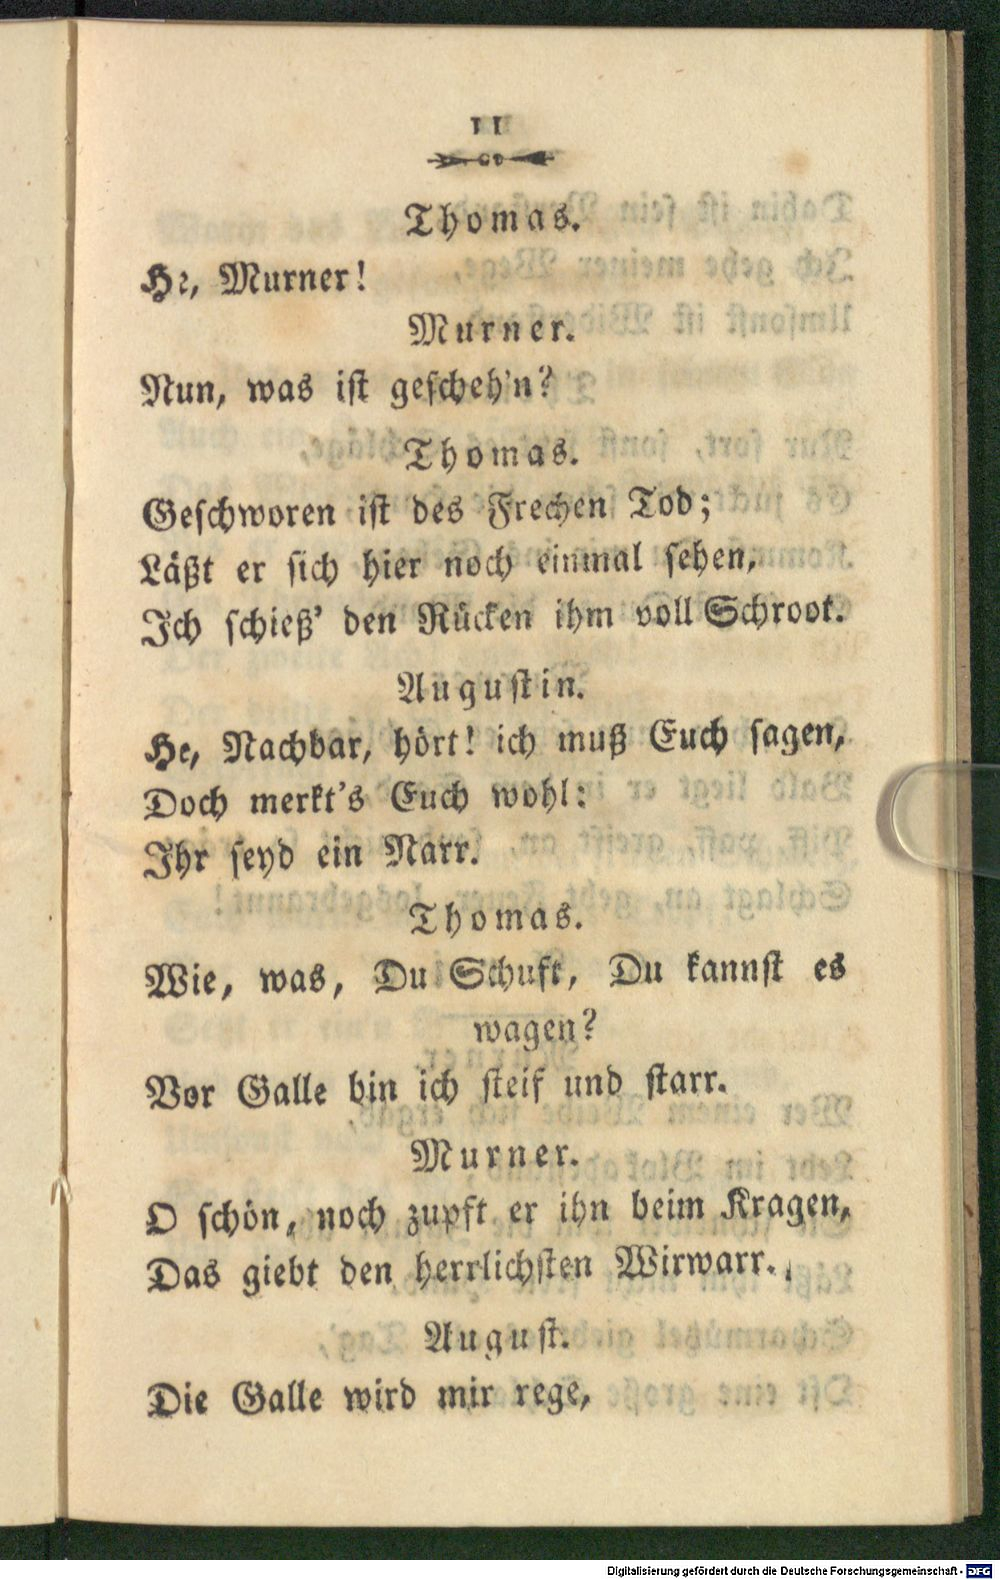 11
Thomas.
He, Murner!
Murner.
Nun, was ist gescheh'n?
Thomas.
Geschworen ist des Frechen Tod;
Läßt er sich hier noch einmal sehen,
Ich schieß' den Rücken ihm voll Schroot.
Augustin.
He, Nachbar, hört! ich muß Euch sagen,
Doch merkt's Euch wohl:
Ihr seyd ein Narr.
Thomas.
Wie, was, Du Schuft, Du kannst es
wagen?
Vor Galle bin ich steif und starr.
Murner.
O schön, noch zupft er ihn beim Kragen,
Das giebt den herrlichsten Wirwarr.
August.
Die Galle wird mir rege,
Digitalisierung gefördert durch die Deutsche Forschungsgemeinschaft - DFG